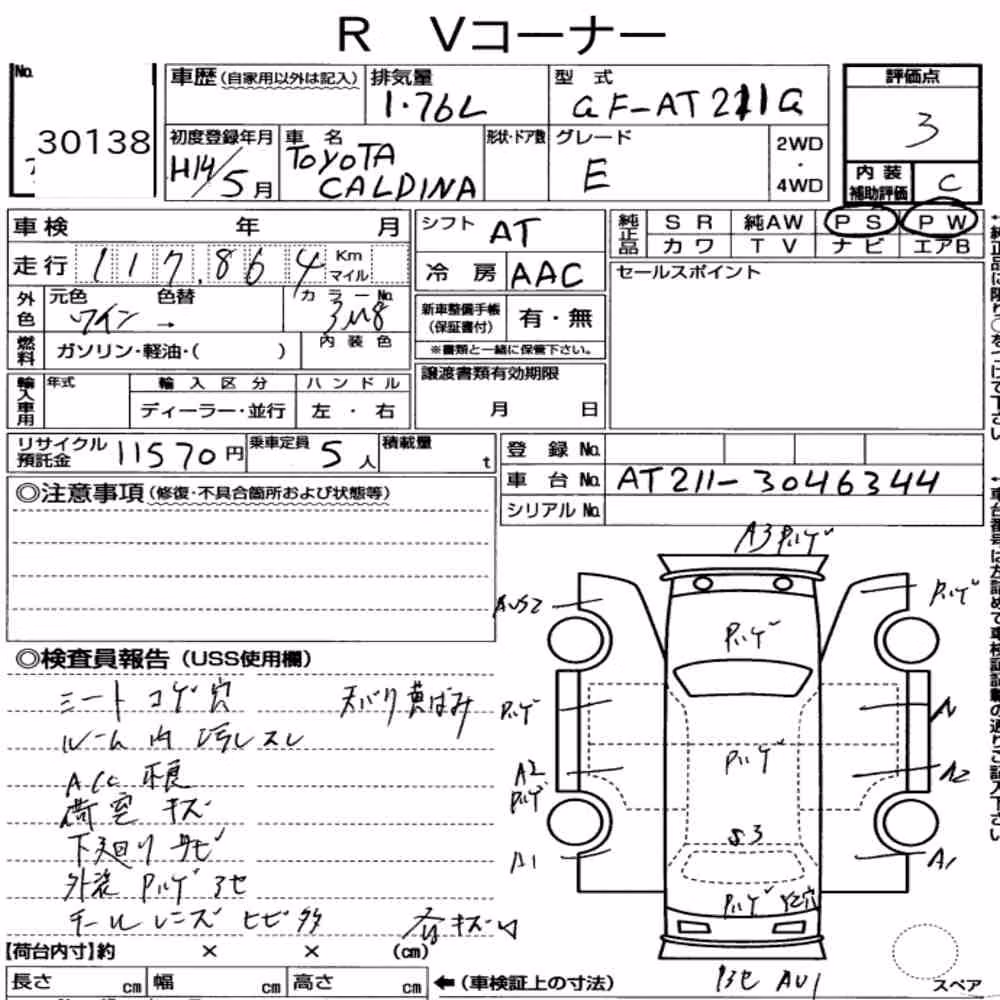 R Vコーナー
No.
30138
車歴(自家用以外は記入)
排気量
1.76L
型式
GF-AT211G
評価点
3
初度登録年月
H14/5月
車名
TOYOTA
CALDINA
形状・ドア数
グレード
E
2WD
・
4WD
内装
補助評価
C
車検 年 月
走行 117,864 Km
マイル
シフト AT
冷房 AAC
純正品
SR 純AW PS PW
カワ TV ナビ エアB
セールスポイント
外色
元色 色替
ワイン →
カラーNo.
3M8
燃料
ガソリン・軽油・( )
内装色
新車整備手帳
(保証書付)
有・無
※書類と一緒に保管下さい。
輸入車用
年式
輸入区分
ディーラー・並行
ハンドル
左・右
譲渡書類有効期限
月 日
リサイクル
預託金
11570円
乗車定員
5人
積載量
t
登録No.
車台No. AT211-3046344
シリアルNo.
◎注意事項(修復・不具合箇所および状態等)
◎検査員報告(USS使用欄)
シート コゲ穴 天バリ黄ばみ
ルーム内 汚レスレ
ACC不良
荷室 キズ
下廻り サビ
外装 ハゲ アセ
テールレンズ ヒビ 多
A3 ハゲ
AUS2
ハゲ
ハゲ
ハゲ
A
A2
ハゲ
ハゲ
A2
S3
A1
A1
ハゲ
アセ AU1
【荷台内寸】約 × × (cm)
長さ cm 幅 cm 高さ cm
←(車検証上の寸法)
スペア